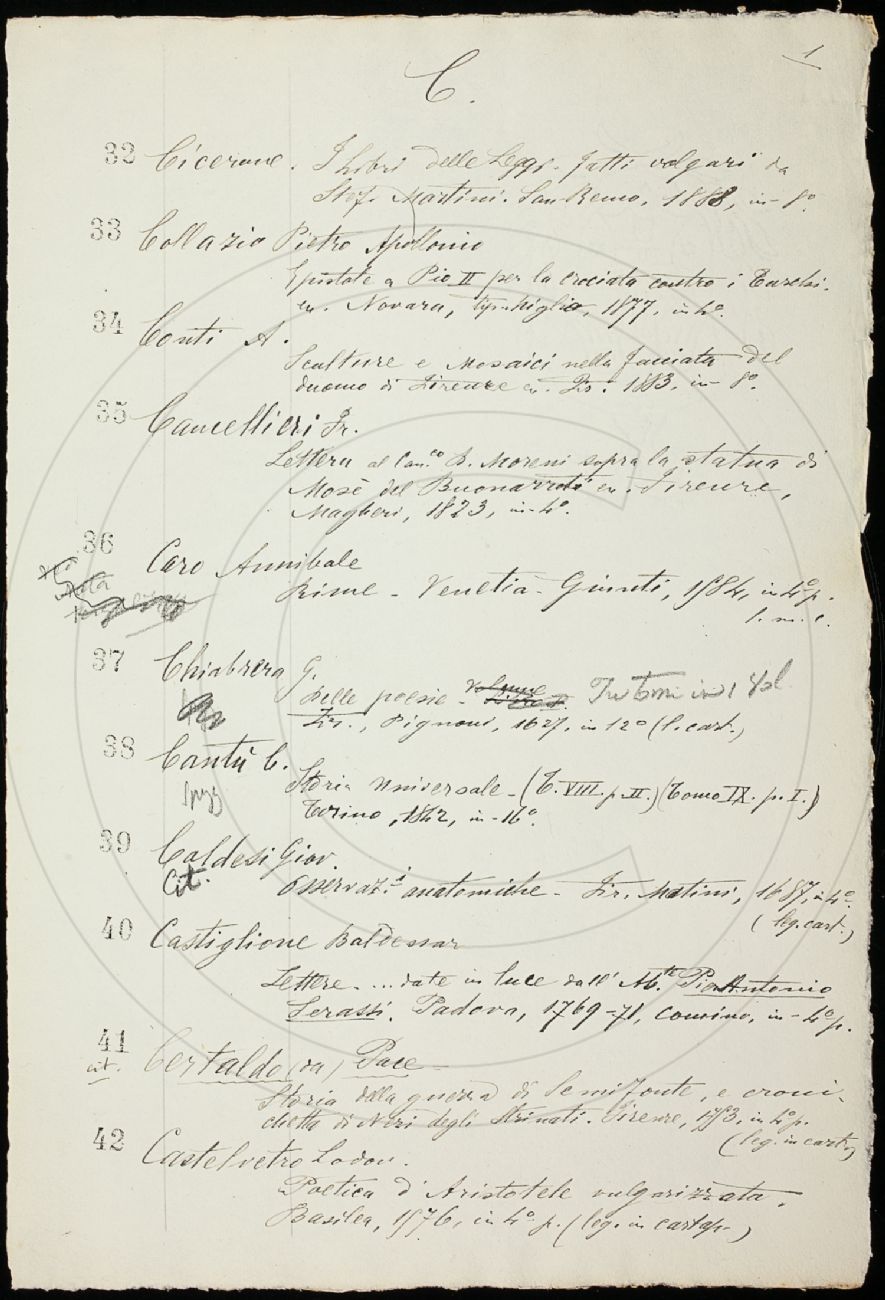 1
C.
32 Cicerone. I Libri delle Leggi. fatti volgari da
Stef. Martini. San Remo, 1888, in-8º.
33 Collazio Pietro Apollonio
Epistole a Pio II per la crociata contro i Turchi.
Novara, tip. Miglio, 1877, in 4º.
34 Conti A.
Sculture e Mosaici nella facciata del
duomo di Firenze Fir. 1883, in-8º.
35 Cancellieri Fr.
Lettera al Can.co D. Moreni sopra la statua di
Mosè del Buonarroti Firenze,
Magheri, 1823, in-4º.
36 Caro Annibale
Rime - Venetia - Giunti, 1584, in 4º p.
37 Chiabrera G.
Delle poesie - Tre Tomi in 1 Vol
Fir., Pignoni, 1627, in 12º (l. cart.)
38 Cantù C.
Storia Universale - (T. VIII. p. II.) (Tomo IX. p. I.)
Torino, 1842, in-16º.
39 Caldesi Giov.
Cit. Osservaz.i anatomiche - Fir. Matini, 1687, in 4º.
(leg. cart.)
40 Castiglione Baldessar
Lettere. ... date in luce dall' Ab.te Pierantonio
Serassi. Padova, 1769-71, Comino, in-4º p.
41 Certaldo (da) Pace
cit. Storia della guerra di Semifonte, e croni-
chetta di Neri degli Strinati. Firenze, 1753, in 4º p.
(leg. in cart.)
42 Castelvetro Lodov.
Poetica d'Aristotele vulgarizzata.
Basilea, 1576, in 4º p. (leg. in cartap.)